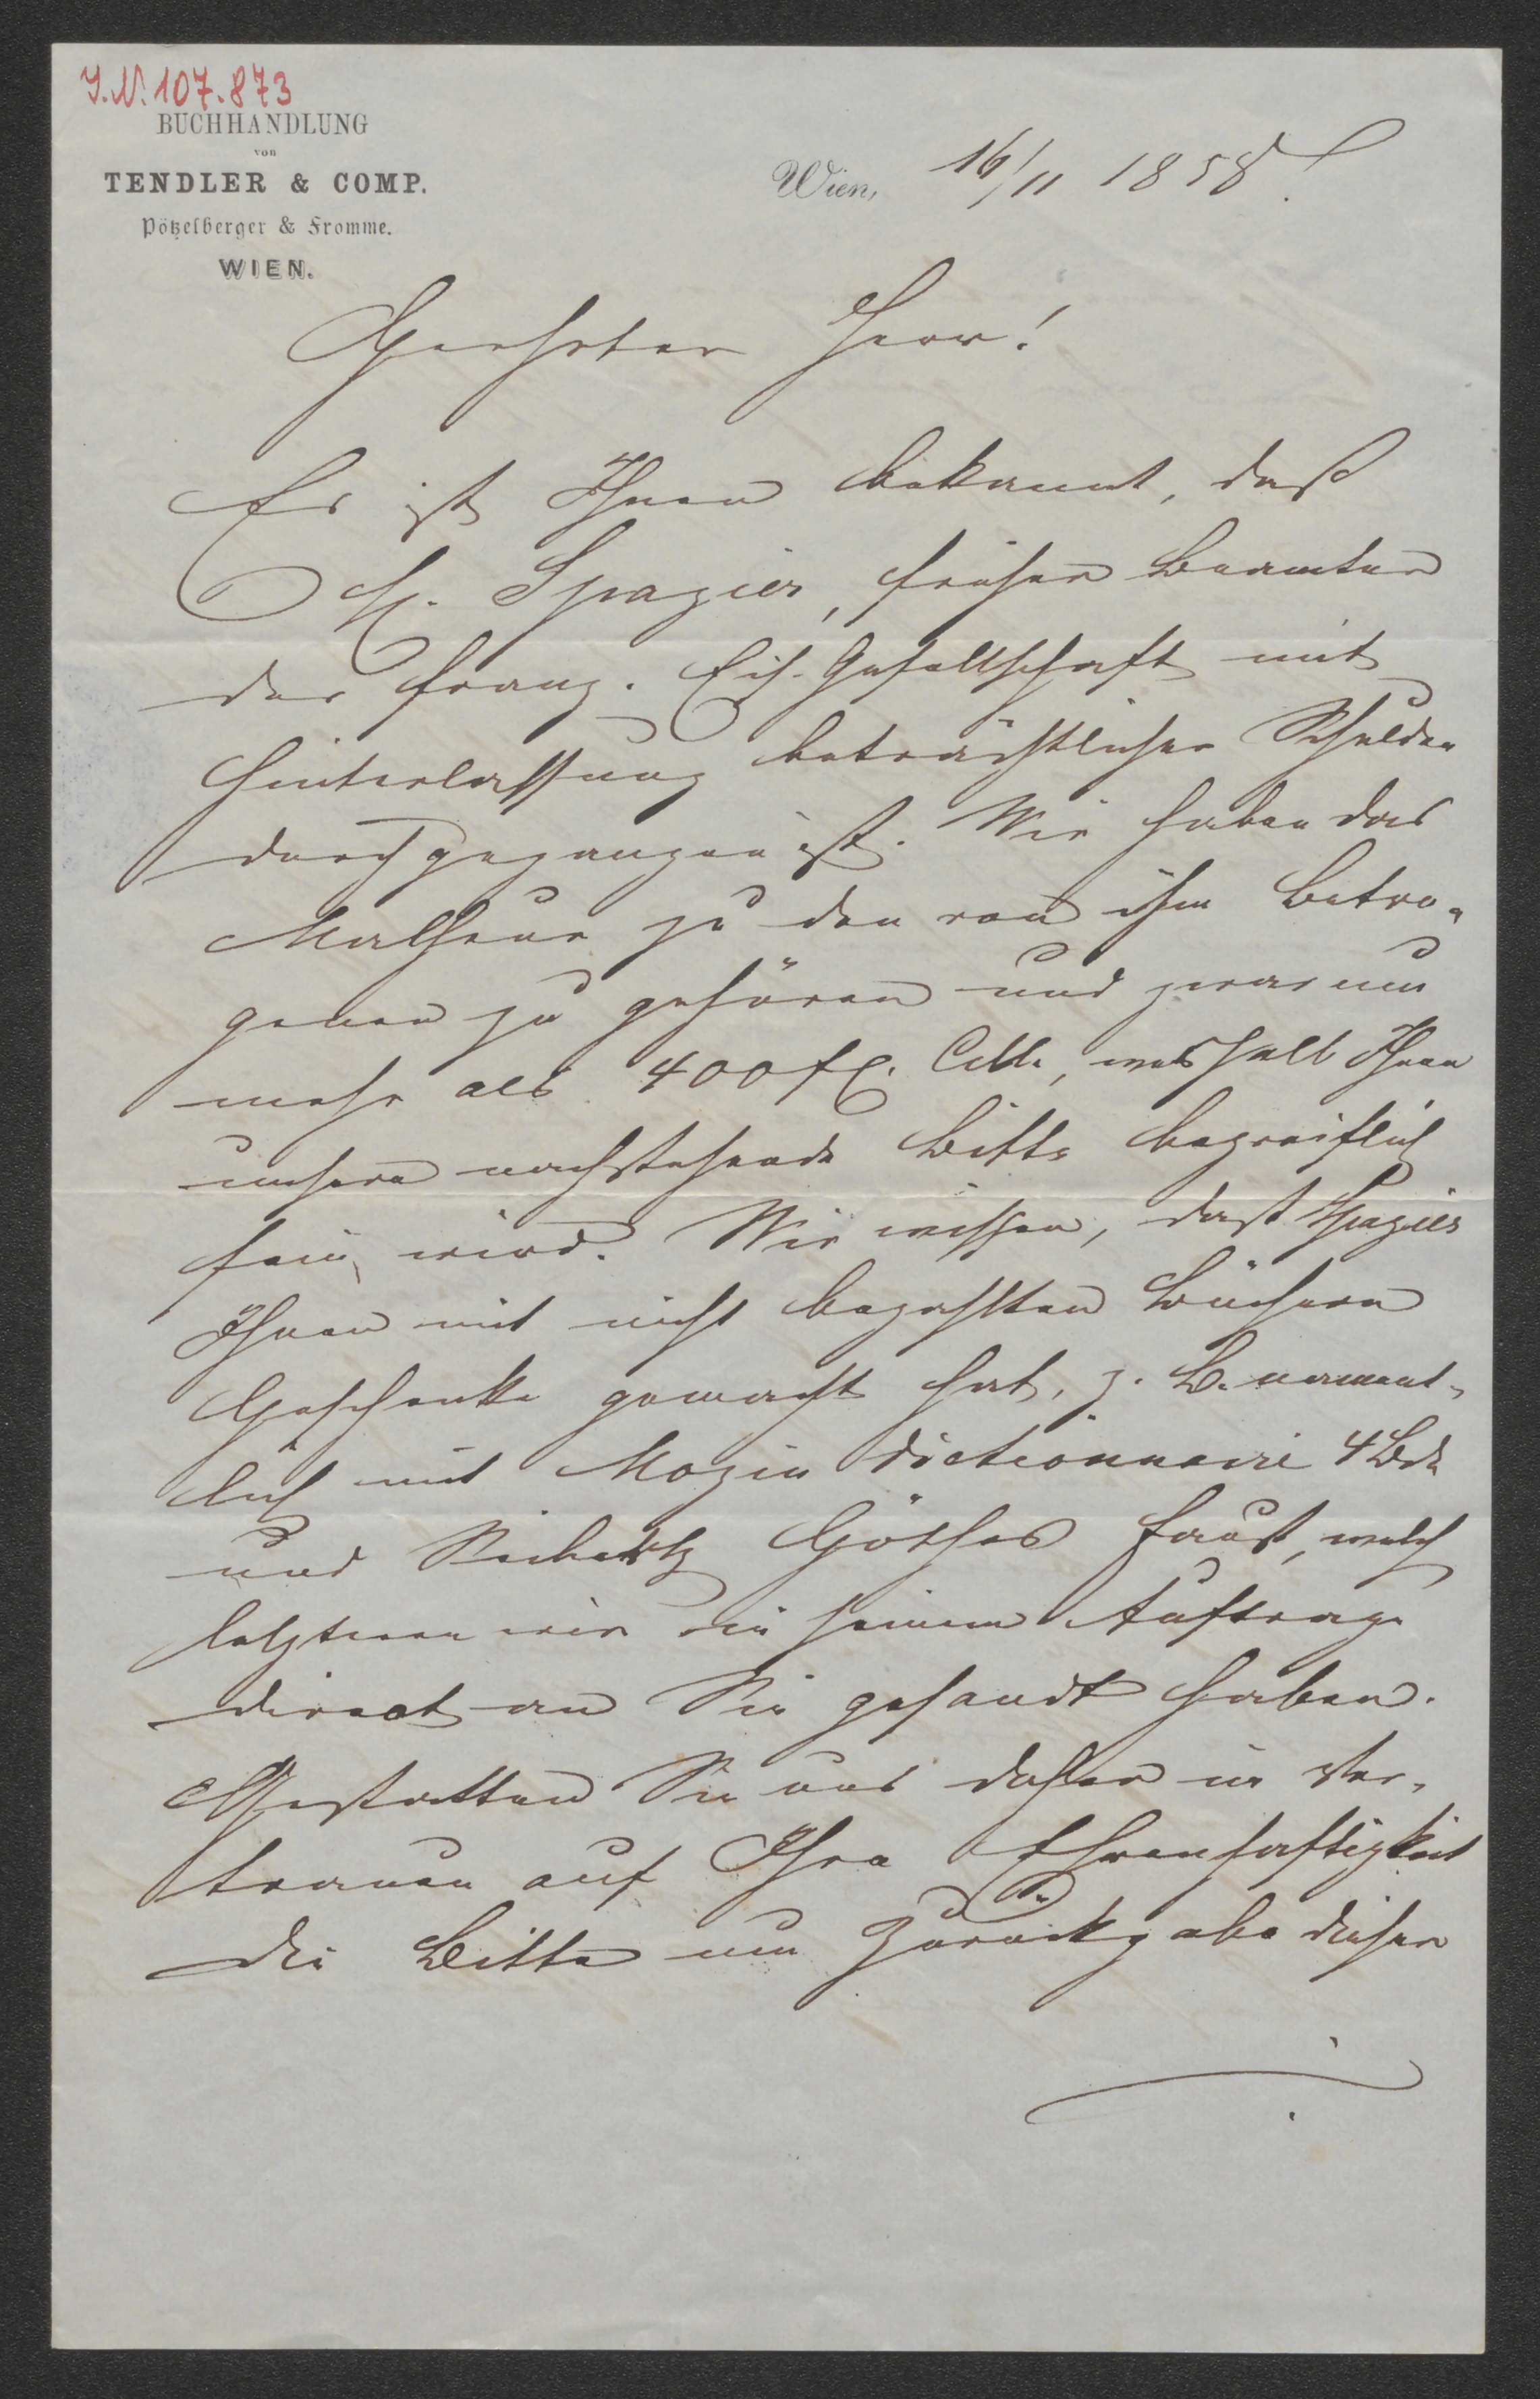 I.N. 107.873
BUCHHANDLUNG
von
TENDLER & COMP.
Pötzelberger & Fromme.
WIEN.
Wien, 16/11 1858
Geehrter Herr!
Es ist Ihnen bekannt, daß
H. Spazier, früher Beamter
der franz. Eis. Gesellschaft mit
Hinterlassung beträchtlicher Schulden
durchgegangen ist. Wir haben das
Malheur zu den von ihm Betro-
genen zu gehören und zwar um
mehr als 400 fl. CMz, weshalb Ihnen
unsere nachstehende Bitte begreiflich
sein wird. Wir wissen, daß Spazier
Ihnen mit nicht bezahlten Büchern
Geschenke gemacht hat, z. B. nament-
lich mit Mozin dictionnaire 4 Bde
und Seibertz Göthes Faust, welch
letzteren wir in seinem Auftrage
direct an Sie gesandt haben.
Gestatten Sie uns daher im Ver-
trauen auf Ihre Ehrenhaftigkeit
die Bitte um Zurückgabe dieser